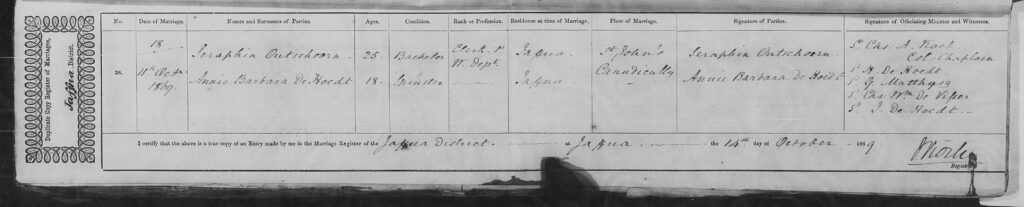 Duplicate Copy Register of Marriages,
Jaffna District.
No.
Date of Marriage.
Names and Surnames of Parties.
Ages.
Condition.
Rank or Profession.
Residence at time of Marriage.
Place of Marriage.
Signature of Parties.
Signature of Officiating Minister and Witnesses.
18
Seraphin Outschoorn
25
Bachelor
Clerk P.
W. Dept.
Jaffna
St John's
Seraphin Outschoorn
Chas A.
Col: Chaplain
38.
11th Octr
1869
Annie Barbara De Hoedt
18
Spinster
Jaffna
Chundically
Annie Barbara De Hoedt
H. De Hoedt
G Matthysz
Chas Wm De
J. De Hoedt
I certify that the above is a true copy of an Entry made by me in the Marriage Register of the Jaffna District. at Jaffna the 14th day of October 1869
Registrar